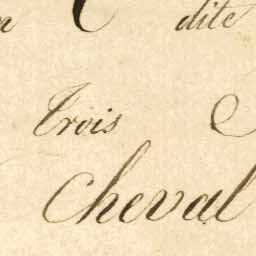 dite
Trois
Cheval